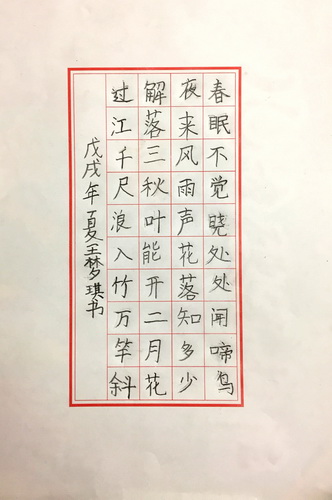 春眠不觉晓处处闻啼鸟
夜来风雨声花落知多少
解落三秋叶能开二月花
过江千尺浪入竹万竿斜
戊戌年夏王梦琪书